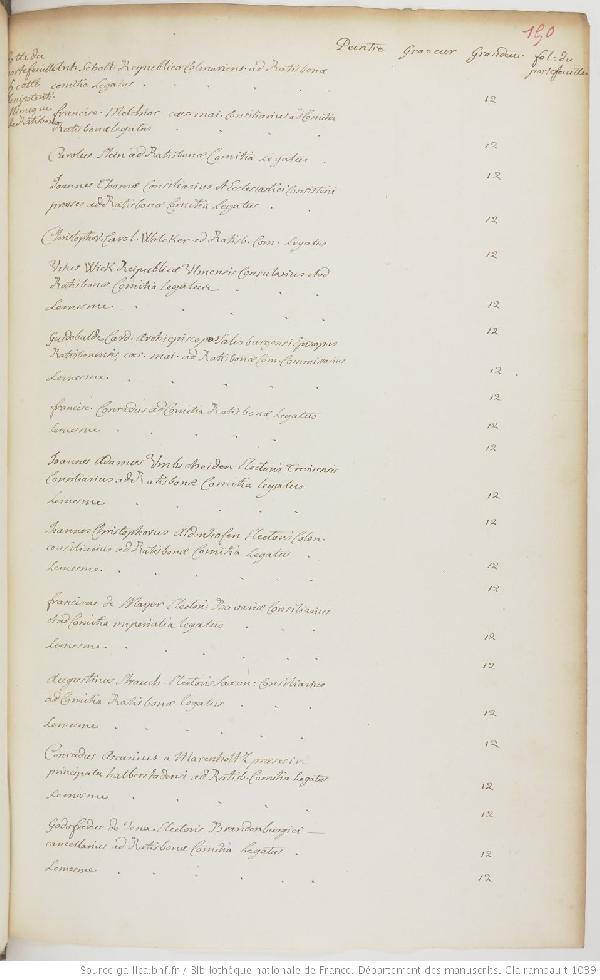 190
Peintre Graveur Grandeur fol. du portefeuille
Scholt Reipublicæ Colmariensi ad Ratisbonæ
comitia Legatus
12
francisc. Melchior cæs. mai. Consiliarius ad Comitia
Ratisbonæ legatus
12
Carolus ad Ratisbonæ Comitia Legatus
12
Joannes Thomæ Consiliarius Ecclesiastici Consistorii
præses ad Ratisbonæ Comitia Legatus
12
Christophor. Carol. Wolcker ad Ratisb. Com. Legatus
12
Reipublicæ Ulmensis Consularius
Ratisbonæ Comitia Legatus
12
Lemesme
12
Guidobald. Card. Archiepiscop. Salisburgensi Episcopus
Ratisbonensis, cæs. mai. ad Ratisbonæ Com. Commissarius
12
Lemesme
12
francisc. Conradus ad Comitia Ratisbonæ Legatus
12
Lemesme
12
Joannes Electoris
Consiliarius ad Ratisbonæ Comitia legatus
12
Lemesme
12
Joannes Christophorus Aldenhofen Electoris Colon.
consiliarius ad Ratisbonæ Comitia Legatus
12
Lemesme
12
franciscus de Mayer Electoris Bavariæ Consiliarius
ad Comitia imperialia legatus
12
Lemesme
12
Augustinus Strauch Electoris Saxon. Consiliarius
ad Comitia Ratisbonæ legatus
12
Lemesme
12
Conradus Ascanius a Marenholtz præses in
principatu halberstadensi ad Ratisb. Comitia Legatus
12
Lemesme
12
Godofridus de Jena Electoris Brandenburgici
cancellarius ad Ratisbonæ Comitia Legatus
12
Lemesme
12
Source gallica.bnf.fr / Bibliothèque nationale de France. Département des manuscrits. Clairambault 1039